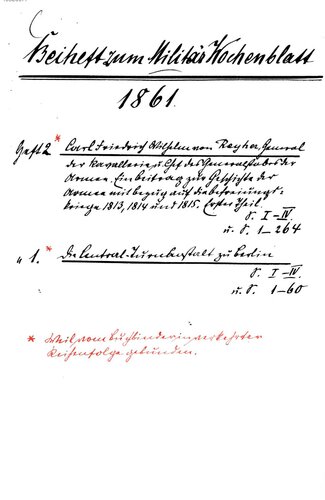 Beiheft zum Militär Wochenblatt
1861.
Heft 2 * Carl Friedrich Wilhelm von Reyher, General
der Kavallerie u. Chef des Generalstabes der
Armee. Ein Beitrag zur Geschichte der
Armee mit bezug auf die Befreiungs-
kriege 1813, 1814 und 1815. Erster Theil.
S. I–IV.
u. S. 1–264
" 1. * Die Central-Turnanstalt zu Berlin
S. I–IV.
u. S. 1–60
* Weil vom Buchbinder in verkehrter
Reihenfolge gebunden.